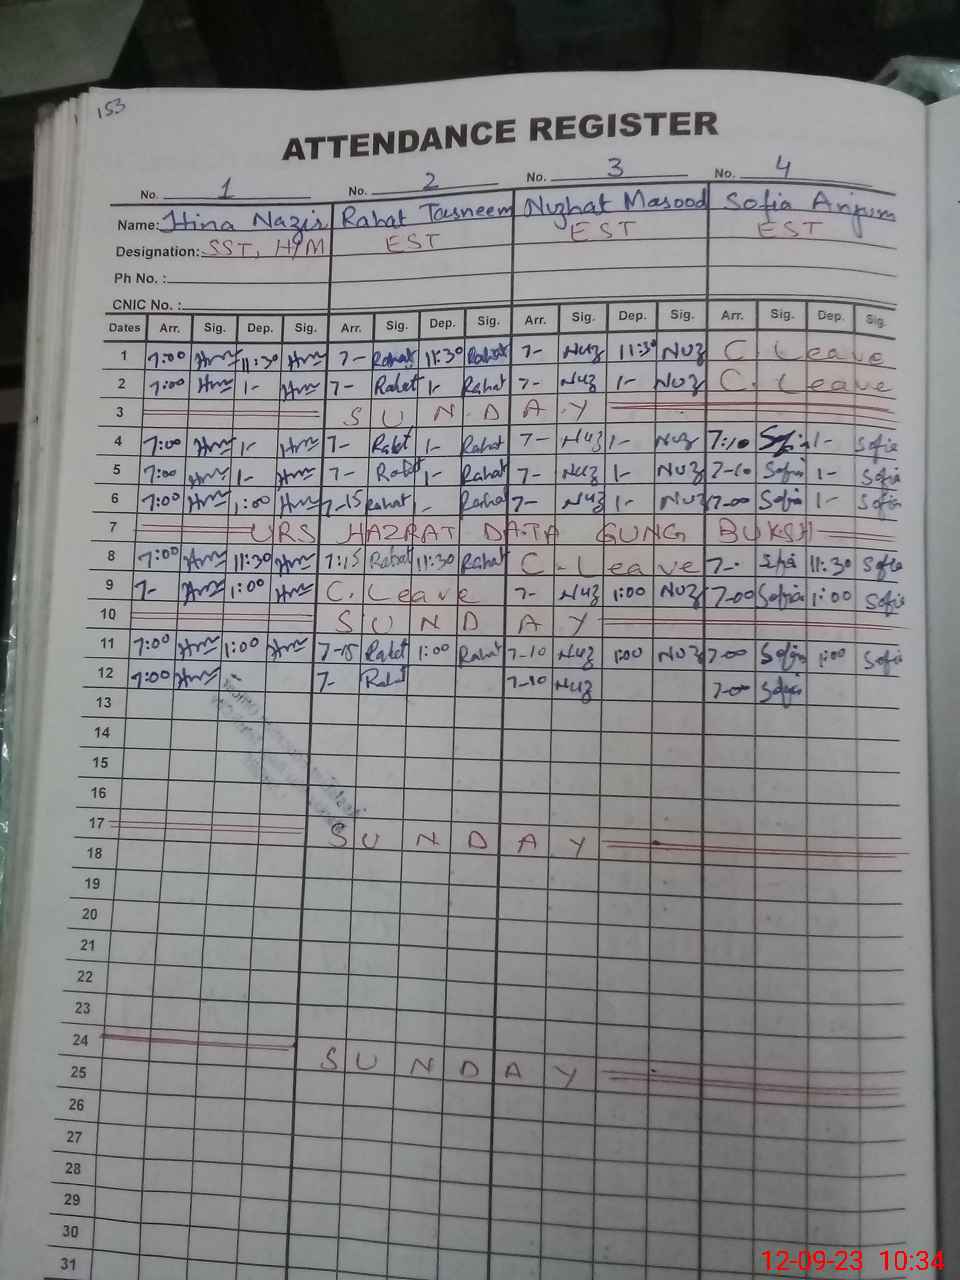 153
ATTENDANCE REGISTER
No. 1 No. 2 No. 3 No. 4
Name: Hina Nazir Rahat Tasneem Nuzhat Masood Sofia Anjum
Designation: SST, H/M EST EST EST
Ph No. :
CNIC No. :
Dates Arr. Sig. Dep. Sig. Arr. Sig. Dep. Sig. Arr. Sig. Dep. Sig. Arr. Sig. Dep. Sig.
1 7:00 11:30 7- Rahat 11:30 Rahat 7- Nuz 11:30 Nuz C. Leave
2 7:00 1- 7- Rahat 1- Rahat 7- Nuz 1- Nuz C. Leave
3 SUNDAY
4 7:00 1- 7- Rahat 1- Rahat 7- Nuz 1- Nuz 7:10 Sofia 1- Sofia
5 7:00 1- 7- Rahat 1- Rahat 7- Nuz 1- Nuz 7-10 Sofia 1- Sofia
6 7:00 1:00 7-15 Rahat 1- Rahat 7- Nuz 1- Nuz 7-00 Sofia 1- Sofia
7 URS HAZRAT DATA GUNG BUKSH
8 7:00 11:30 7:15 Rahat 11:30 Rahat C. Leave 7- Sofia 11:30 Sofia
9 7- 1:00 C. Leave 7- Nuz 1:00 Nuz 7-00 Sofia 1:00 Sofia
10 SUNDAY
11 7:00 1:00 7-15 Rahat 1:00 Rahat 7-10 Nuz 1:00 Nuz 7-00 Sofia 1:00 Sofia
12 7:00 7- Rahat 7-10 Nuz 7-00 Sofia
13
14
15
16
17 SUNDAY
18
19
20
21
22
23
24 SUNDAY
25
26
27
28
29
30
31
12-09-23 10:34